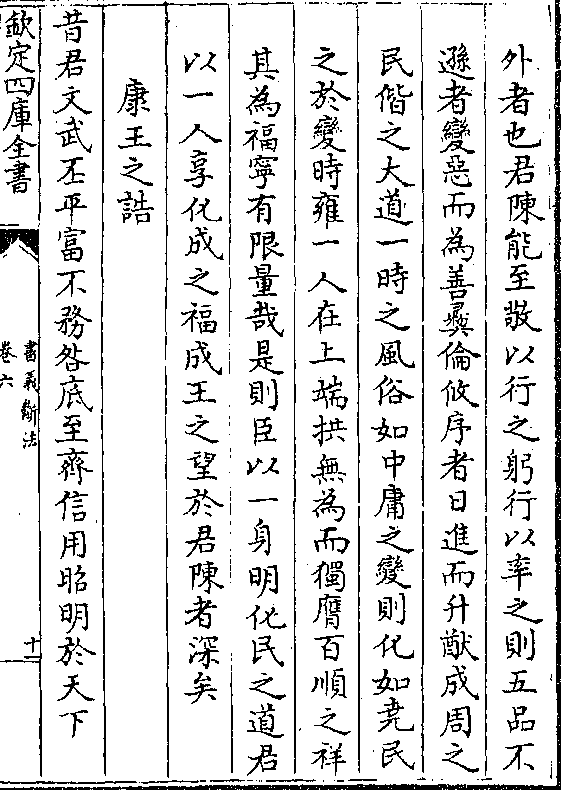 外者也君陳能至敬以行之躬行以率之則五品不
遜者變惡而為善彞倫攸序者日進而升猷成周之
民偕之大道一時之風俗如中庸之變則化如堯民
之於變時雍一人在上端拱無為而獨膺百順之祥
其為福寧有限量哉是則臣以一身明化民之道君
以一人享化成之福成王之望於君陳者深矣
康王之誥
昔君文武丕平富不務咎底至齊信用昭明於天下
欽定四庫全書
書義斷法
卷六
十